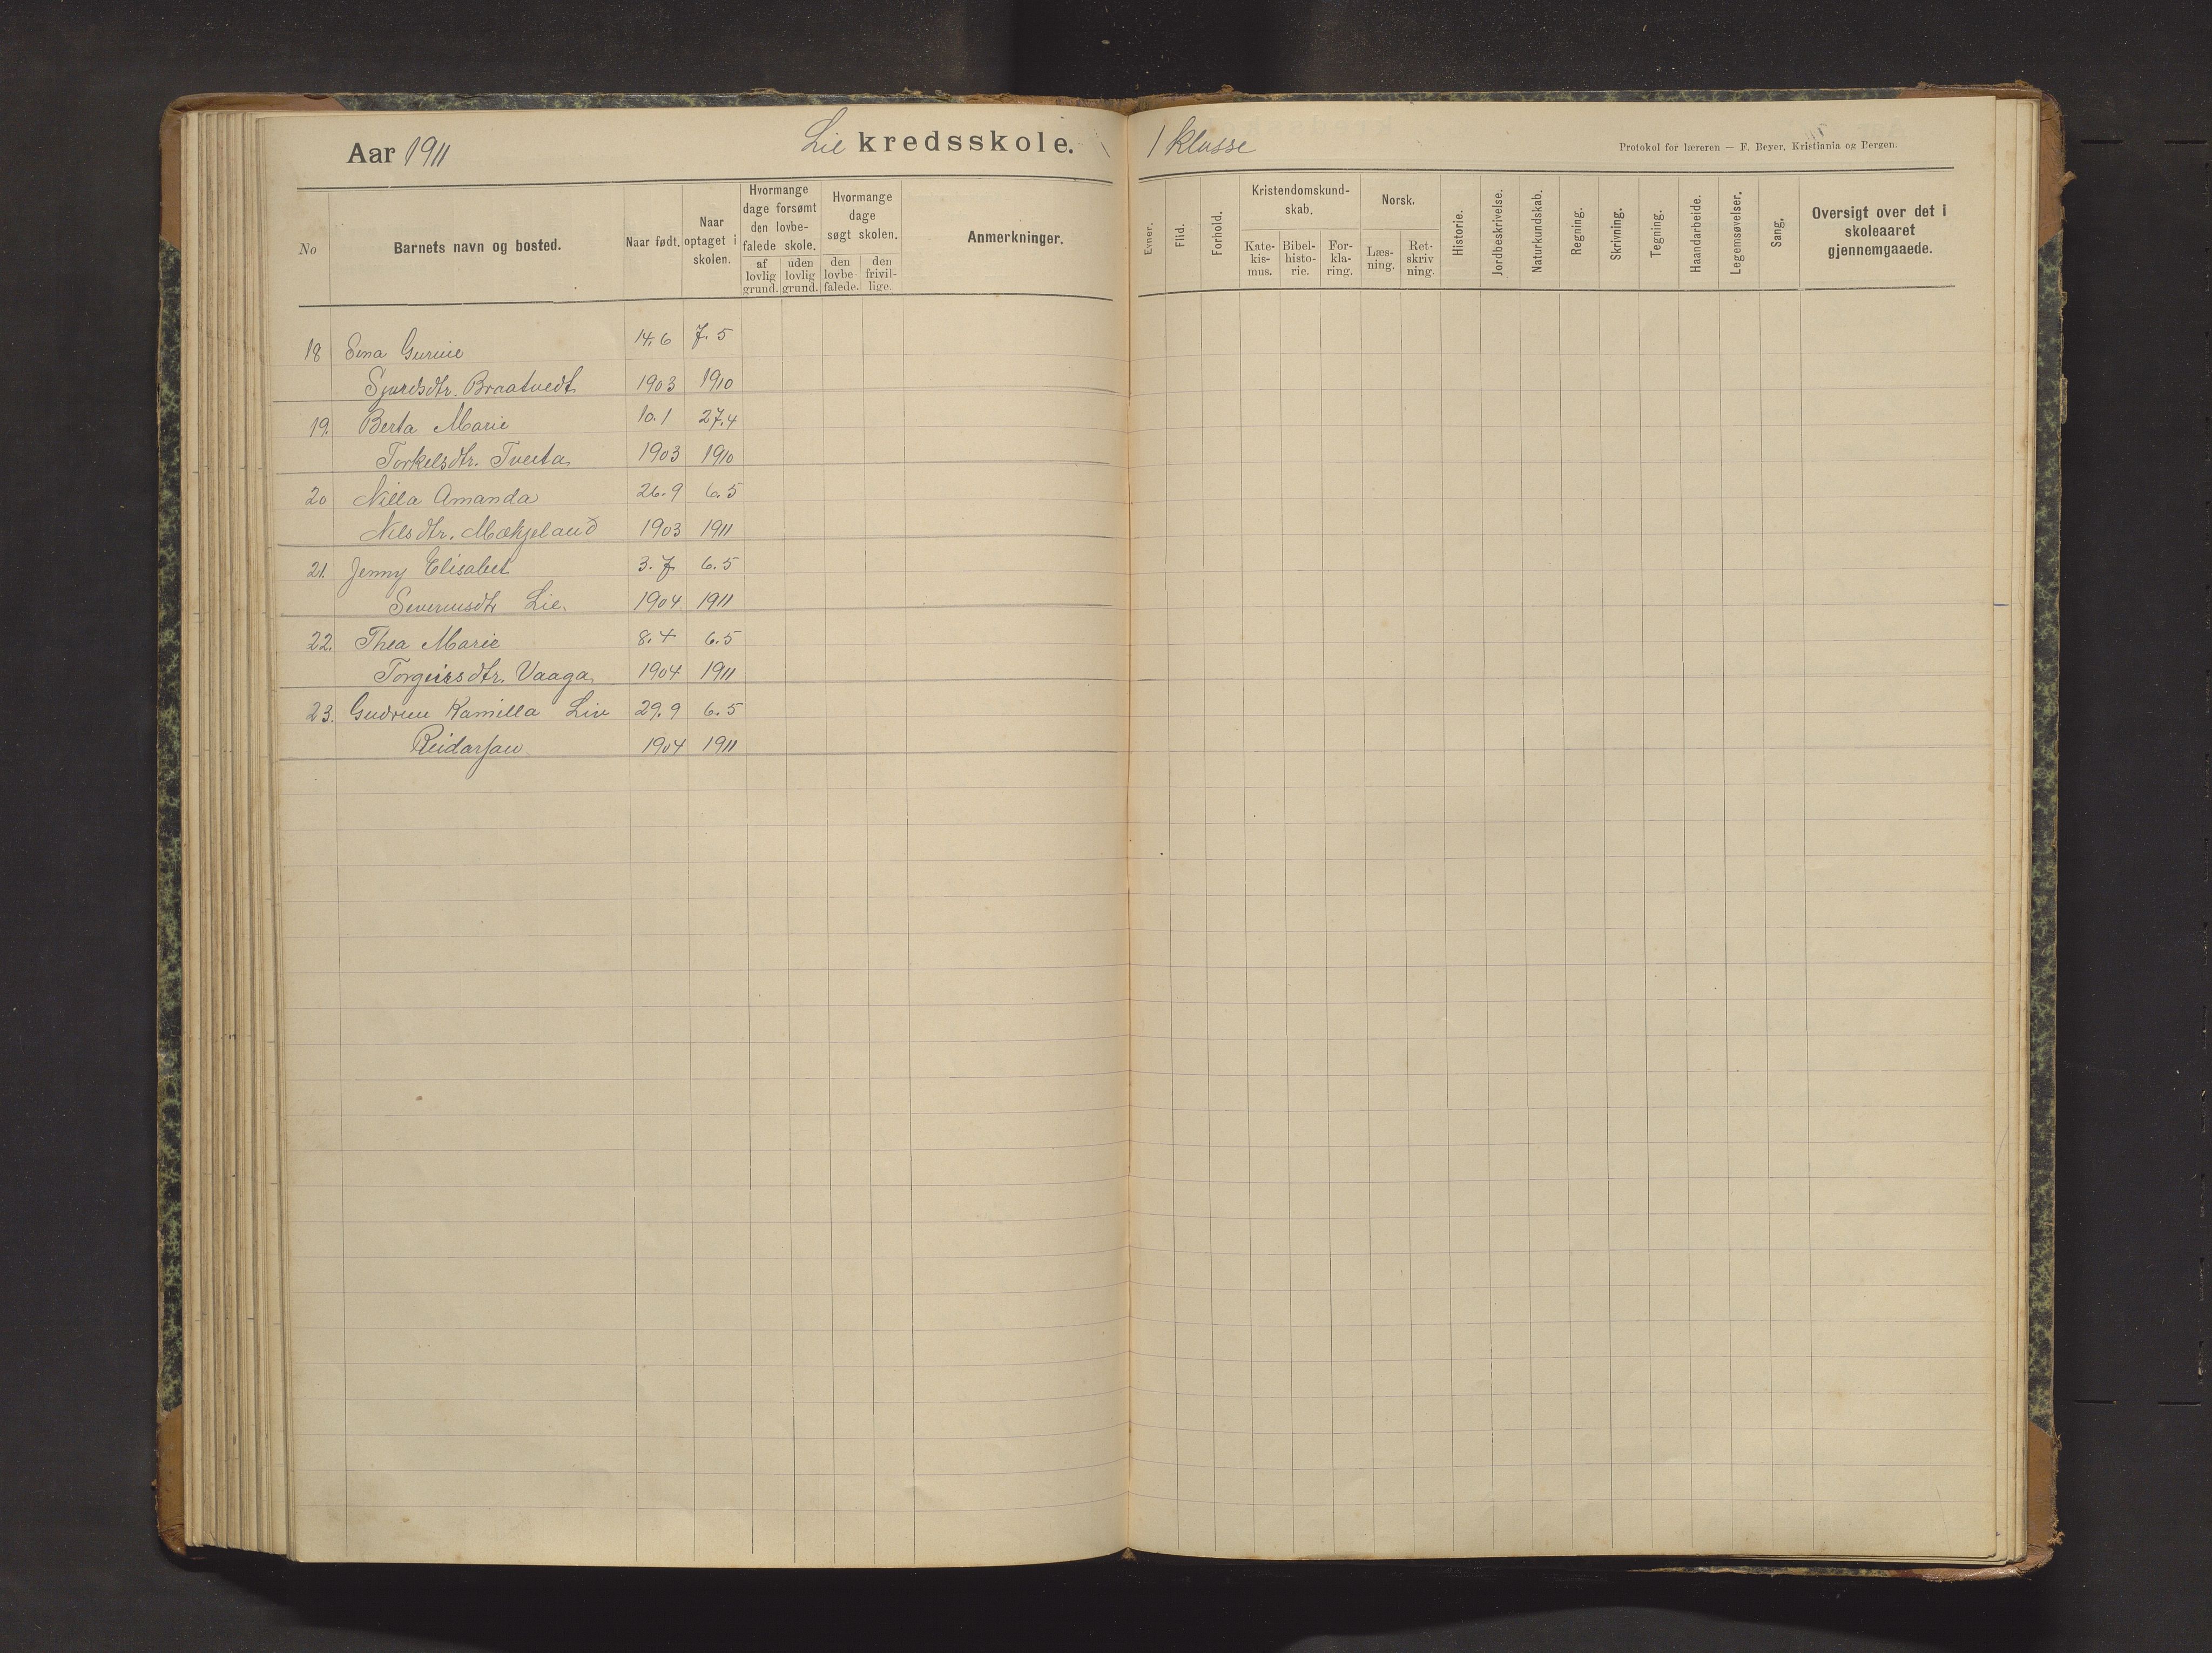 Aar 1911 Lie kredsskole. 1 klasse
Protokol for læreren — F. Beyer, Kristiania og Bergen.
No
Barnets navn og bosted.
Naar født.
Naar optaget i skolen.
Hvormange dage forsømt den lovbefalede skole.
af lovlig grund.
uden lovlig grund.
Hvormange dage søgt skolen.
den lovbefalede.
den frivillige.
Anmerkninger.
Evner.
Flid.
Forhold.
Kristendomskundskab.
Katekismus.
Bibelhistorie.
Forklaring.
Norsk.
Læsning.
Retskrivning.
Historie.
Jordbeskrivelse.
Naturkundskab.
Regning.
Skrivning.
Tegning.
Haandarbeide.
Legemsøvelser.
Sang.
Oversigt over det i skoleaaret gjennemgaaede.
18 Sina Gurine 14.6 7.5
Sjurdsdtr. Braatvedt 1903 1910
19. Berta Marie 10.1 27.4
Torkelsdtr. Tveita 1903 1910
20 Nilla Amanda 26.9 6.5
Nilsdtr. Mækjeland 1903 1911
21. Jenny Elisabet 3.7 6.5
Severinsdtr Lie. 1904 1911
22. Thea Marie 8.4 6.5
Torgeirsdtr. Vaaga 1904 1911
23. Gudrun Kamilla Liv 29.9 6.5
Reidarsen 1904 1911